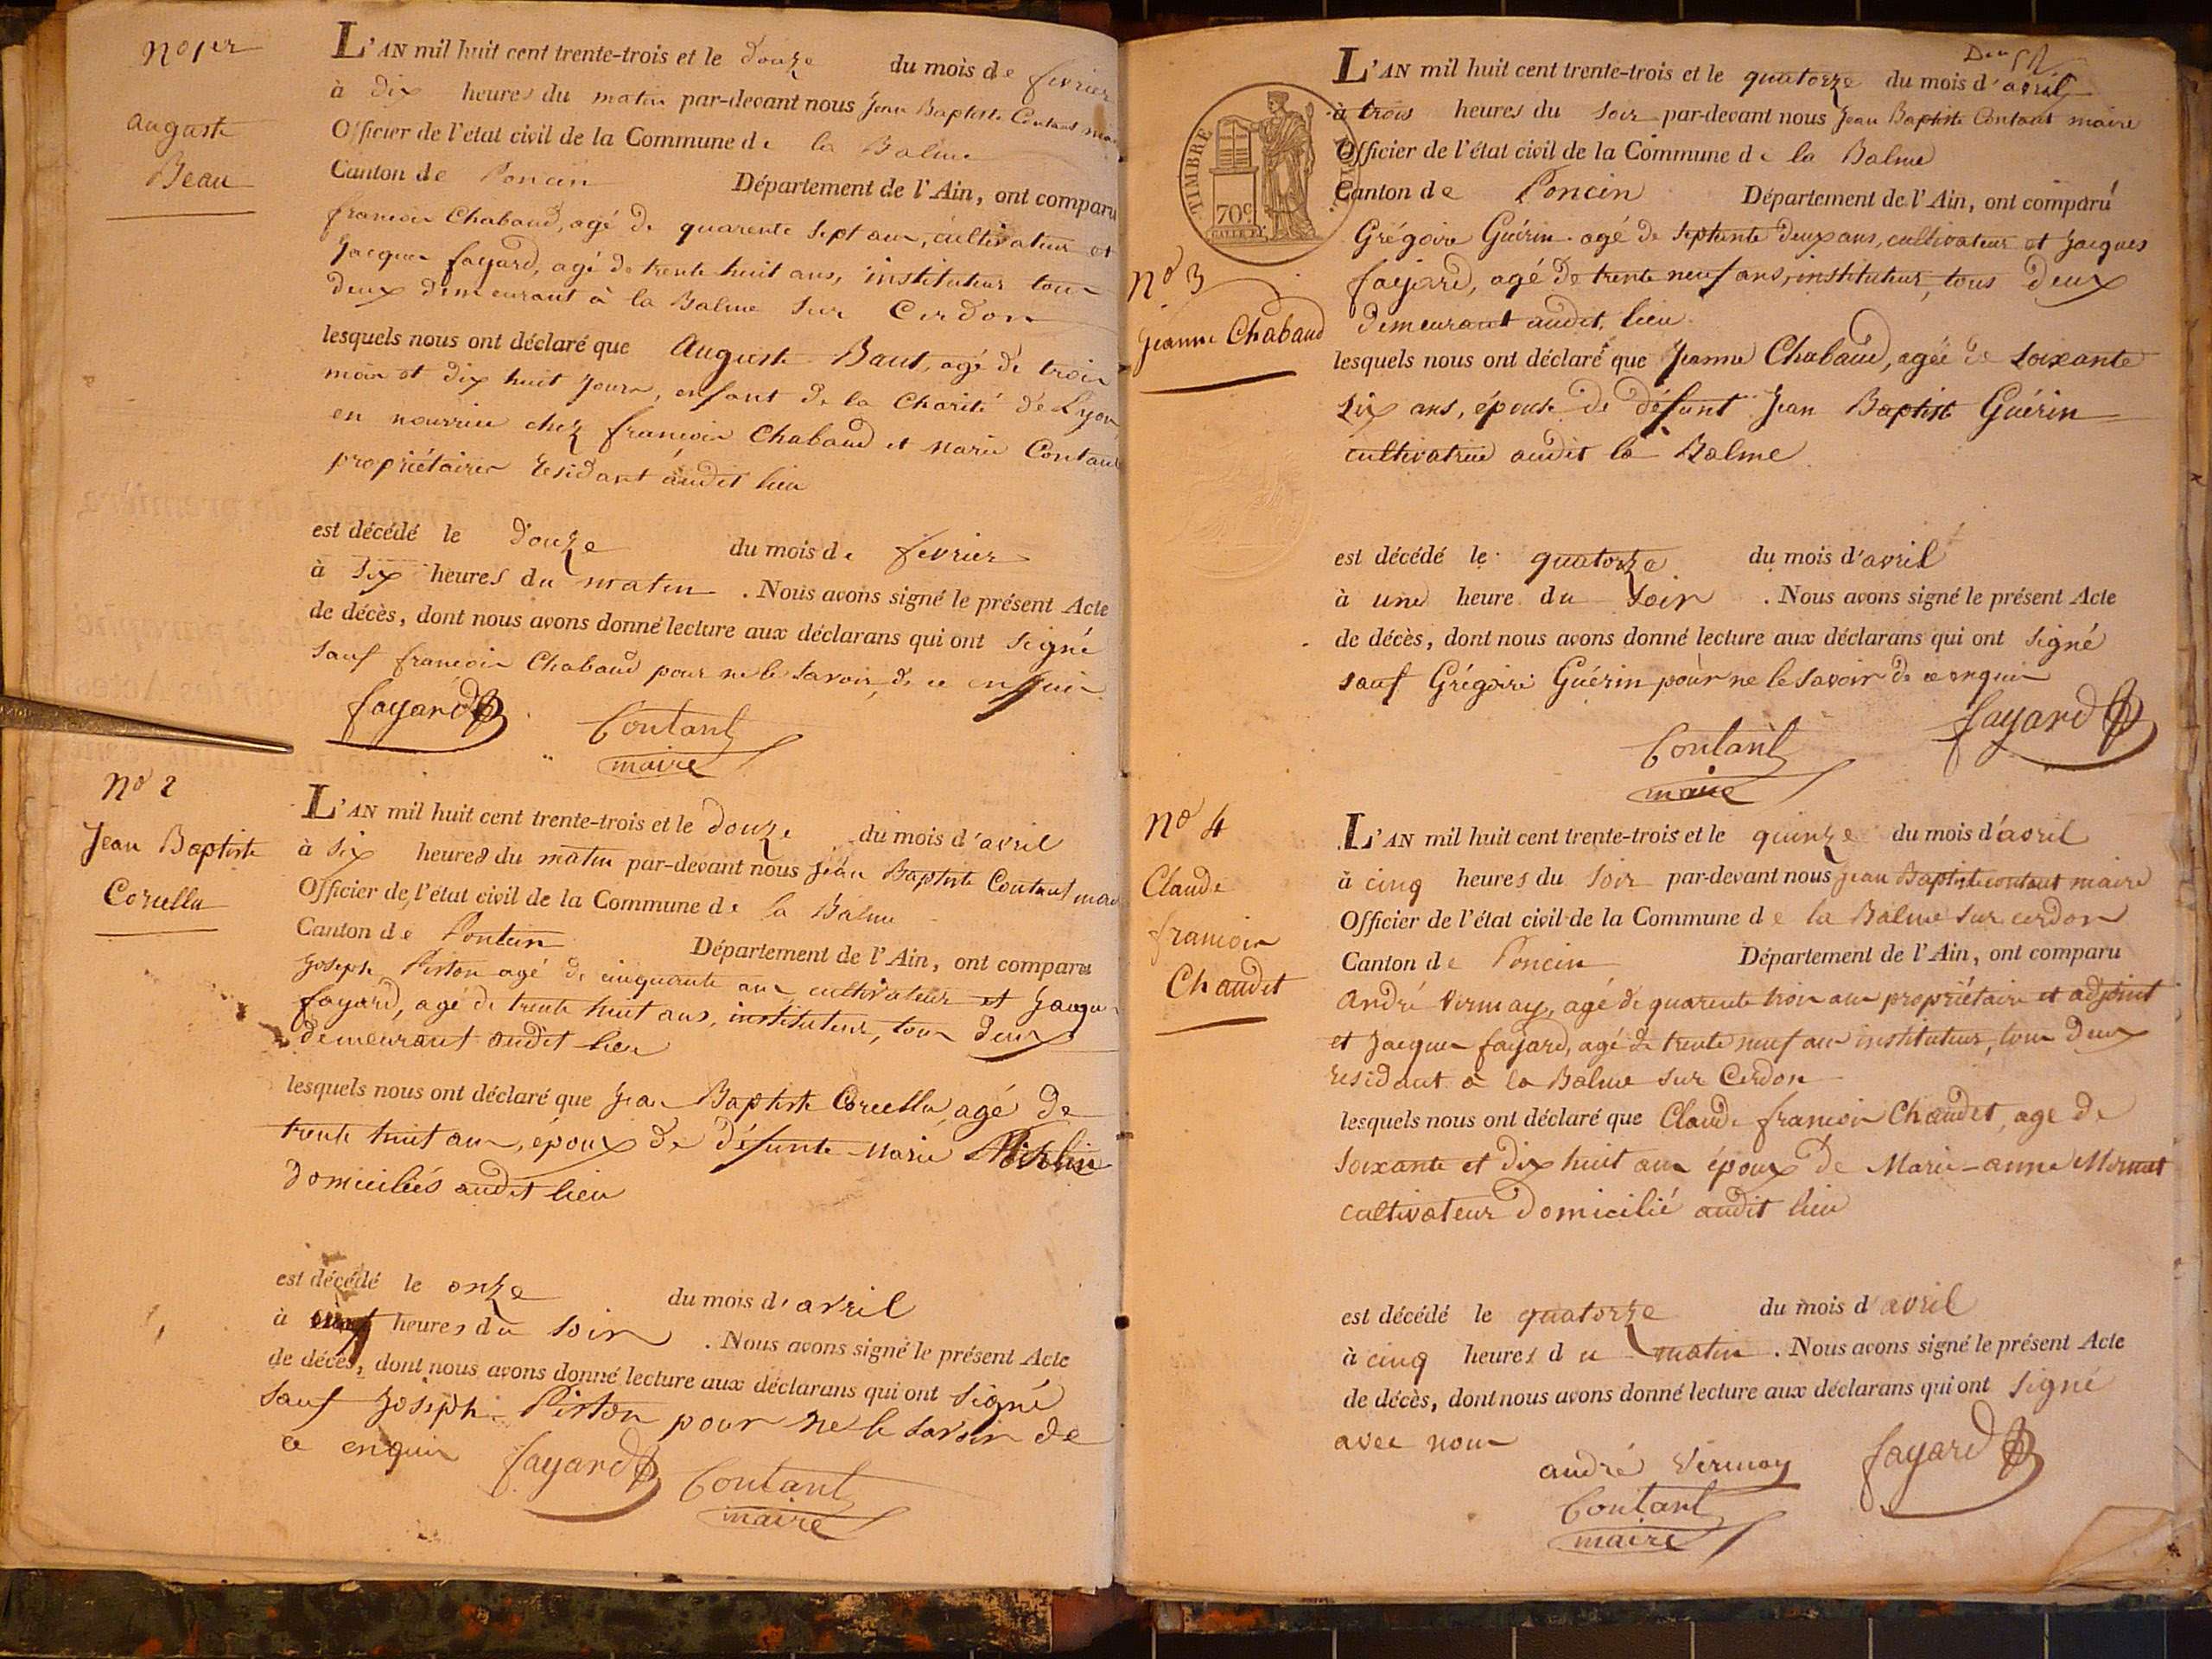 No 1er
auguste
Beau
L'AN mil huit cent trente-trois et le douze du mois de fevrier
à dix heures du matin par-devant nous Jean Baptiste Contant
Officier de l'état civil de la Commune de la Balme
Canton de Poncin Département de l'Ain, ont comparu
francois Chabaud, agé de quarente sept ans, cultivateur et
Jacques fayard, agé de trente huit ans, instituteur tous
deux demeurant à la Balme sur Cerdon
lesquels nous ont déclaré que Auguste Baut, agé de trois
mois et dix huit jours, enfant de la Charité de Lyon
en nourrice chez francois Chabaud et Marie Contant
propriétaires residant audit lieu
est décédé le douze du mois de fevrier
à six heures du matin . Nous avons signé le présent Acte
de décès, dont nous avons donné lecture aux déclarans qui ont signé
sauf francois Chabaud pour ne le savoir de ce enquis
fayard Contant
maire
No 2
Jean Baptiste
Corcella
L'AN mil huit cent trente-trois et le douze du mois d'avril
à six heures du matin par-devant nous Jean Baptiste Contant
Officier de l'état civil de la Commune de la Balme
Canton de Département de l'Ain, ont comparu
Joseph Piston agé de cinquante ans cultivateur et Jacques
fayard, agé de trente huit ans, instituteur, tous deux
demeurant audit lieu
lesquels nous ont déclaré que Jean Baptiste Corcella agé de
trente huit ans, époux de défunte Marie
domiciliés audit lieu
est décédé le onze du mois d'avril
à heures du soir . Nous avons signé le présent Acte
de décès, dont nous avons donné lecture aux déclarans qui ont signé
sauf Joseph Piston pour ne le savoir de
ce enquis fayard Contant
maire
TIMBRE ROYAL
70c
No 3
Jeanne Chabaud
L'AN mil huit cent trente-trois et le quatorze du mois d'avril
à trois heures du soir par-devant nous Jean Baptiste Contant maire
Officier de l'état civil de la Commune de la Balme
Canton de Poncin Département de l'Ain, ont comparu
Grégoire Guérin agé de septente deux ans, cultivateur et Jacques
fayard, agé de trente neuf ans, instituteur, tous deux
demeurant audit lieu
lesquels nous ont déclaré que Jeanne Chabaud, agée de soixante
six ans, épouse de défunt Jean Baptiste Guérin
cultivatrice audit la Balme
est décédé le quatorze du mois d'avril
à une heure du soir . Nous avons signé le présent Acte
de décès, dont nous avons donné lecture aux déclarans qui ont signé
sauf Grégoire Guérin pour ne le savoir de ce enquis
Contant fayard
maire
No 4
Claude
francois
Chaudet
L'AN mil huit cent trente-trois et le quinze du mois d'avril
à cinq heures du soir par-devant nous Jean Baptiste contant maire
Officier de l'état civil de la Commune de la Balme sur cerdon
Canton de Poncin Département de l'Ain, ont comparu
André Vermay, agé de quarente trois ans propriétaire et adjoint
et Jacques fayard, agé de trente neuf ans instituteur, tous deux
residant à la Balme sur Cerdon
lesquels nous ont déclaré que Claude francois Chaudet, age de
soixante et dix huit ans époux de Marie-anne
cultivateur domicilié audit lieu
est décédé le quatorze du mois d'avril
à cinq heures du matin . Nous avons signé le présent Acte
de décès, dont nous avons donné lecture aux déclarans qui ont signé
avec nous
andré Vermay fayard
Contant
maire